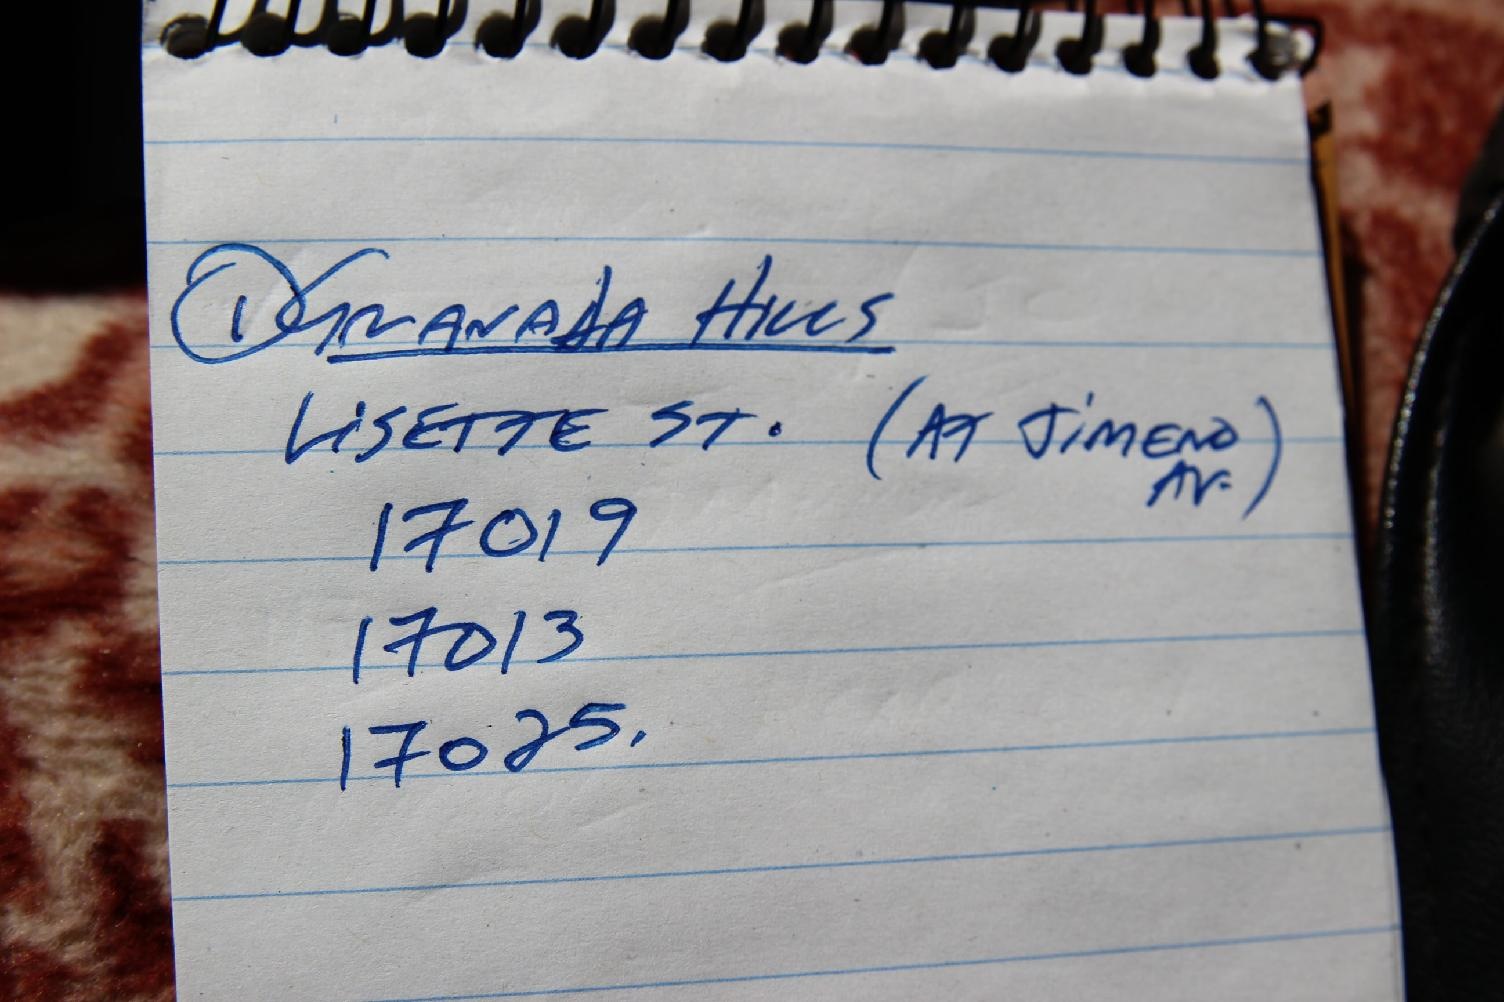 ① GRANADA HILLS
LISETTE ST. (AT JIMENO AV.)
17019
17013
17025.